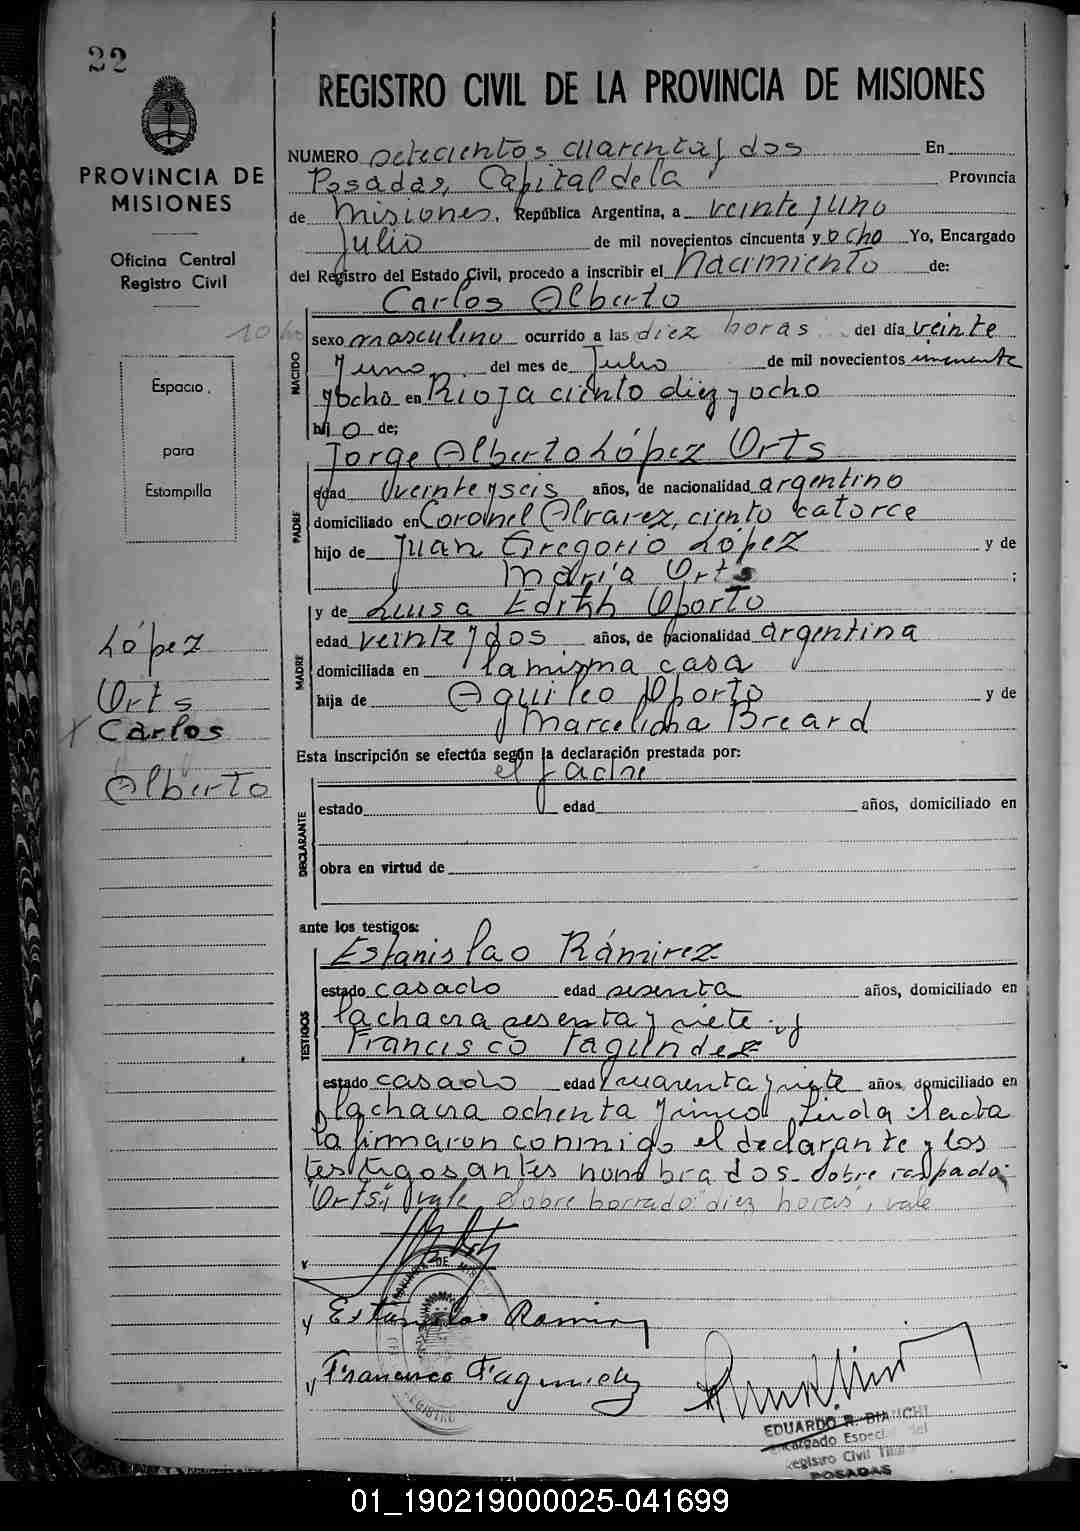 22
REGISTRO CIVIL DE LA PROVINCIA DE MISIONES
PROVINCIA DE
MISIONES
Oficina Central
Registro Civil
10 ho
Espacio
para
Estampilla
López
Orts
X Carlos
Alberto
NUMERO Setecientos cuarenta y dos En
Posadas, Capital de la Provincia
de Misiones, República Argentina, a veinte y uno
Julio de mil novecientos cincuenta y ocho Yo, Encargado
del Registro del Estado Civil, procedo a inscribir el Nacimiento de:
NACIDO
Carlos Alberto
sexo masculino ocurrido a las diez horas del día veinte
y uno del mes de Julio de mil novecientos cincuenta
y ocho en Rioja ciento diez y ocho
hijo de;
PADRE
Jorge Alberto López Orts
edad veinte y seis años, de nacionalidad argentino
domiciliado en Coronel Alvarez, ciento catorce
hijo de Juan Gregorio López y de
María Orts ;
MADRE
y de Luisa Edith Oporto
edad veinte y dos años, de nacionalidad argentina
domiciliada en la misma casa
hija de Aquileo Oporto y de
Marcelina Breard
Esta inscripción se efectúa según la declaración prestada por:
DECLARANTE
el padre
estado edad años, domiciliado en
obra en virtud de
ante los testigos:
TESTIGOS
Estanislao Rámirez
estado casado edad sesenta años, domiciliado en
la chacra sesenta y siete y
Francisco Fagundez
estado casado edad cuarenta y siete años, domiciliado en
la chacra ochenta y cinco Leida el acta
la firmaron conmigo el declarante y los
testigos antes nombrados. Sobre raspado:
"Orts", vale Sobre borrado "diez horas", vale
y Estanislao Ramirez
y Francisco Fagundez
PROVINCIA DE MISIONES
REGISTRO
EDUARDO R. BIANCHI
Encargado Especial del
Registro Civil
POSADAS
01_190219000025-041699